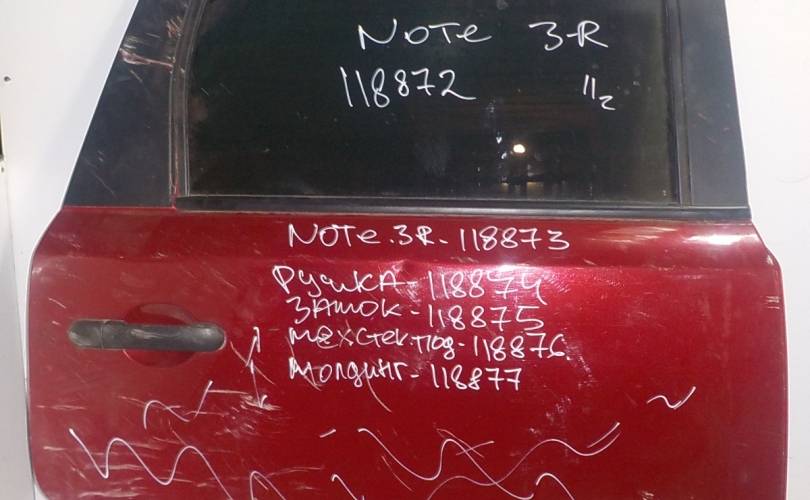 NOTE 3-R
118872 11₂
NOTE.3R-118873
РУЧКА-118874
ЗАМОК-118875
МЕХСТЕК.ПОД-118876
МОЛДИНГ-118877